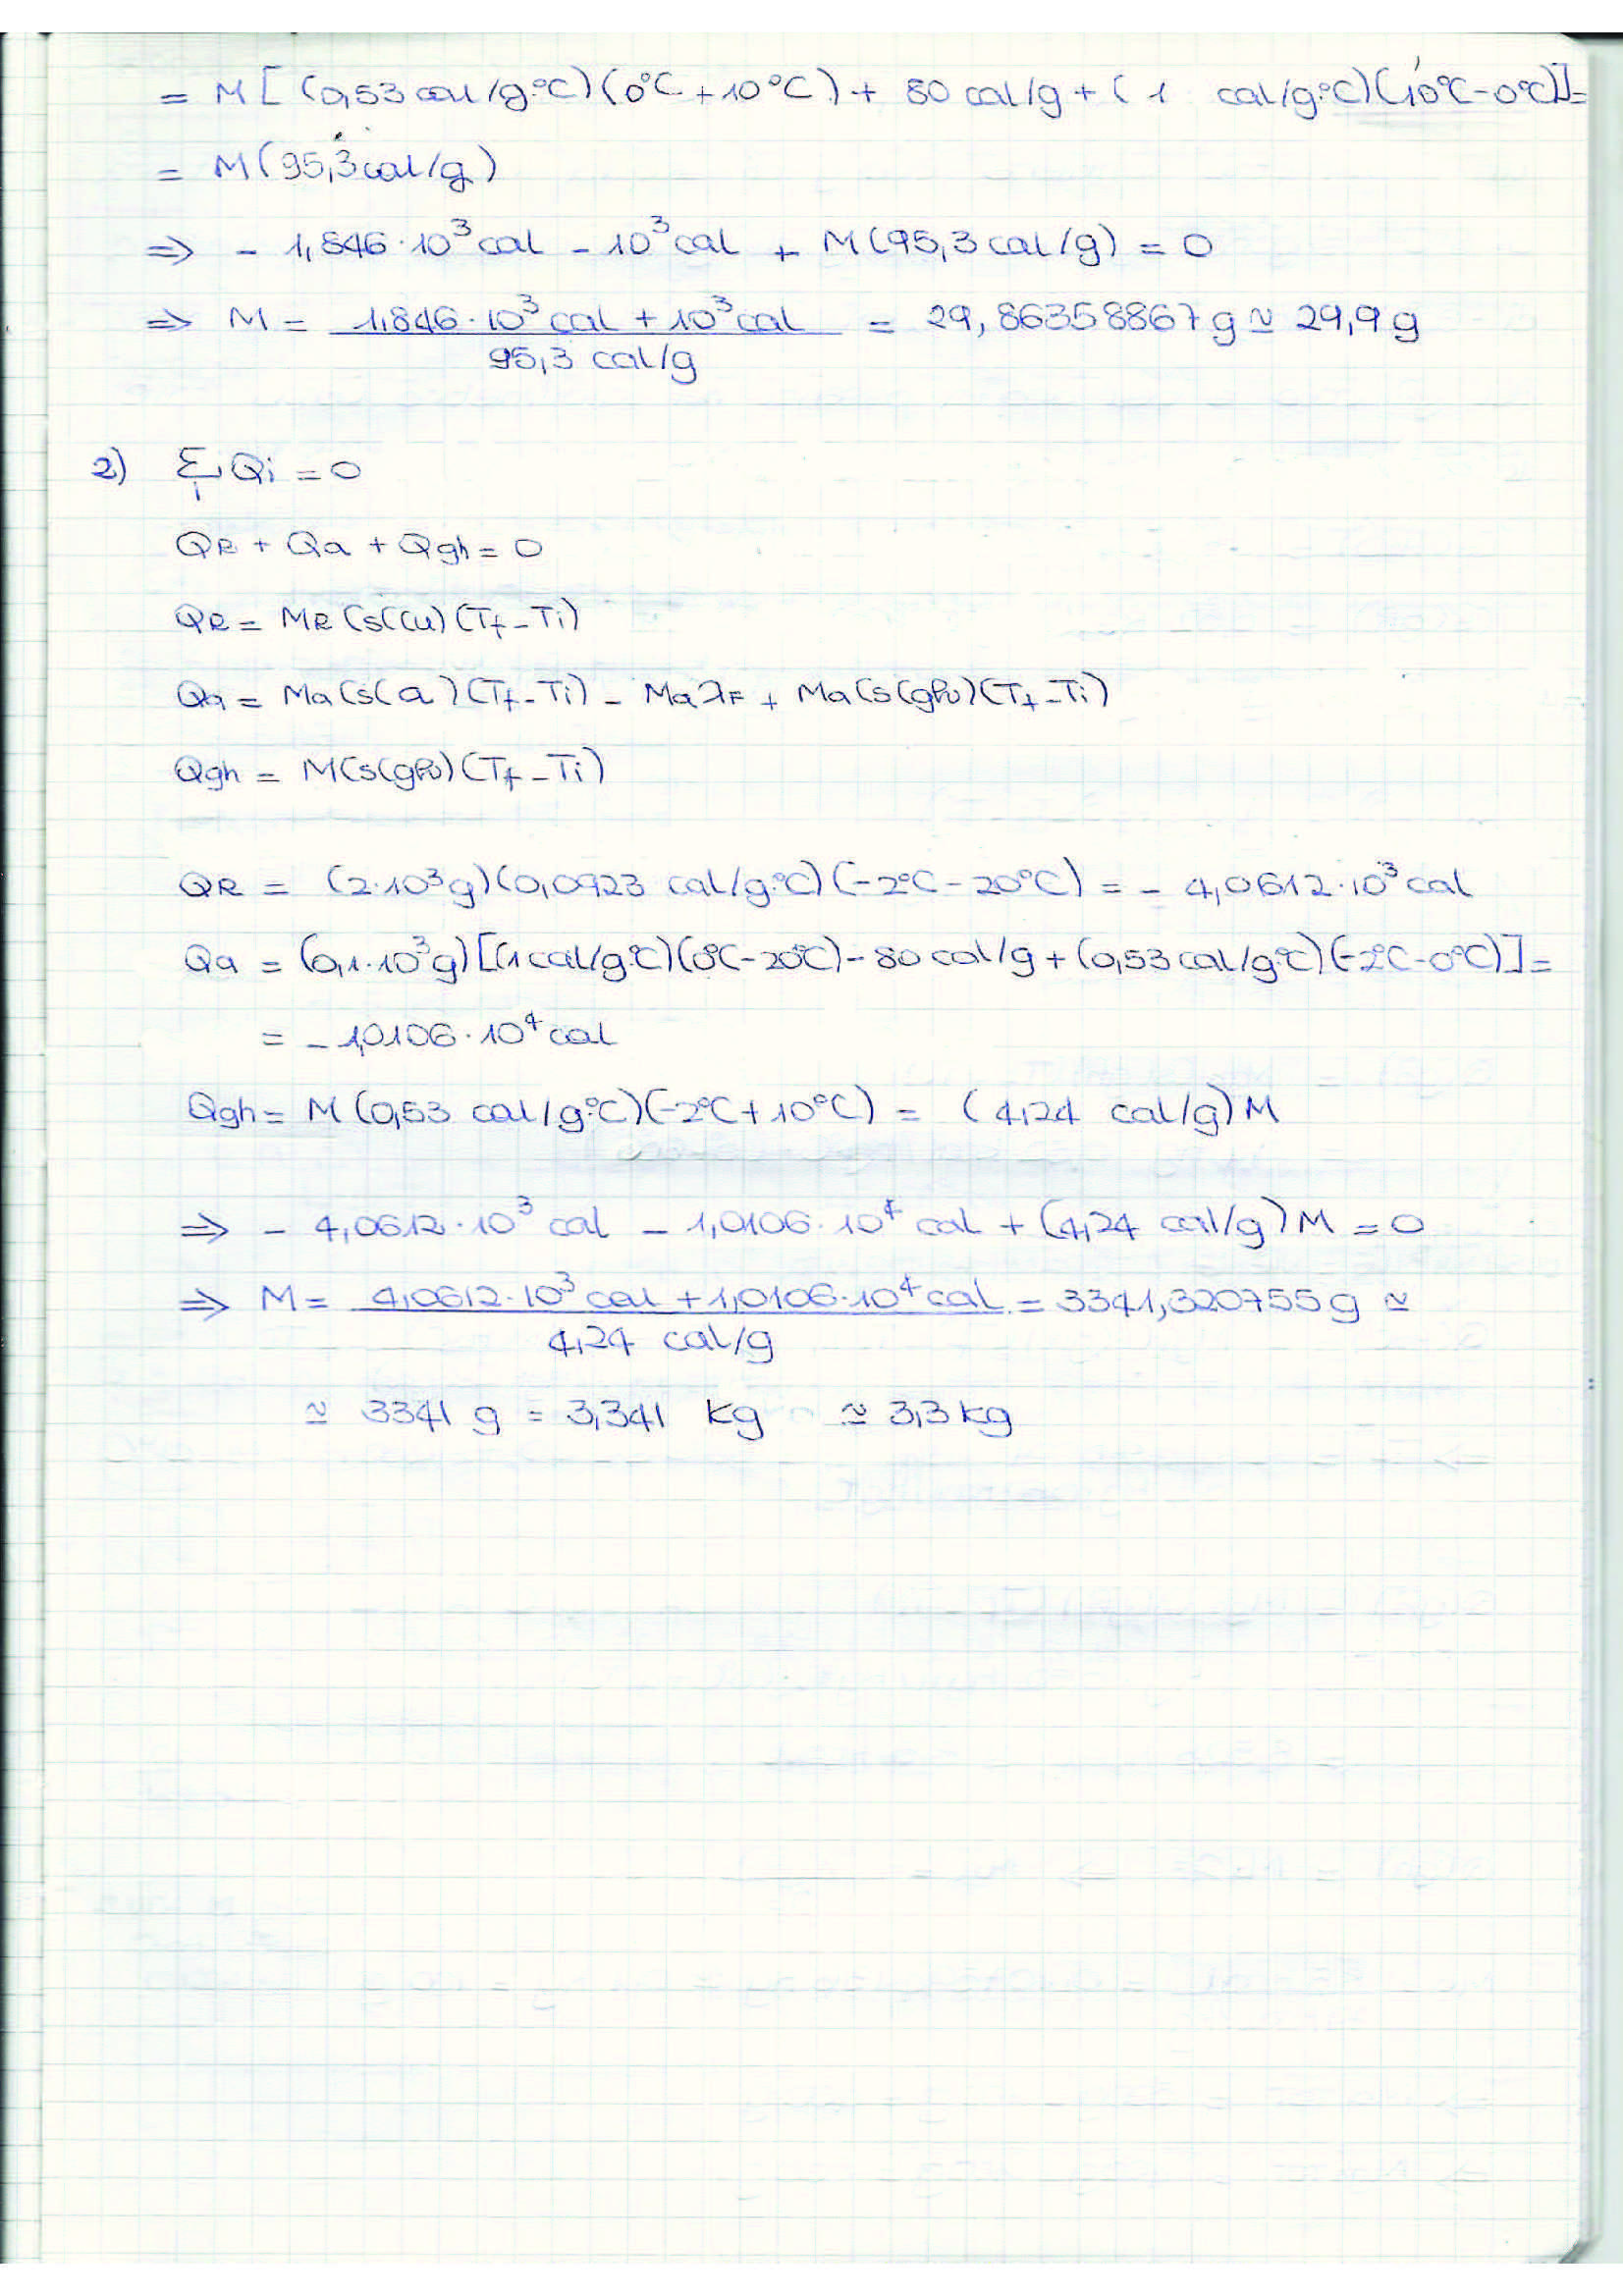 = M[(0,53 cal/g·°C)(0°C+10°C)+ 80 cal/g+(1 cal/g·°C)(10°C-0°C)]=
= M(95,3 cal/g)
⇒ - 1,846·10³ cal - 10³ cal + M(95,3 cal/g) = 0
⇒ M = (1,846·10³ cal + 10³ cal)/(95,3 cal/g) = 29,86358867 g ≃ 29,9 g
2) Σi Qi = 0
QR + Qa + Qgh = 0
QR = MR Cs(Cu)(Tf-Ti)
Qa = Ma Cs(a)(Tf-Ti) - Ma λF + Ma Cs(gho)(Tf-Ti)
Qgh = M Cs(gho)(Tf-Ti)
QR = (2·10³g)(0,0923 cal/g·°C)(-2°C-20°C) = - 4,0612·10³ cal
Qa = (0,1·10³g)[(1 cal/g·°C)(0°C-20°C)-80 cal/g+(0,53 cal/g·°C)(-2°C-0°C)]=
= -1,0106·10⁴ cal
Qgh = M(0,53 cal/g·°C)(-2°C+10°C) = (4,24 cal/g)M
⇒ - 4,0612·10³ cal - 1,0106·10⁴ cal + (4,24 cal/g)M = 0
⇒ M = (4,0612·10³ cal + 1,0106·10⁴ cal)/(4,24 cal/g) = 3341,320755 g ≃
≃ 3341 g = 3,341 kg ≃ 3,3 kg